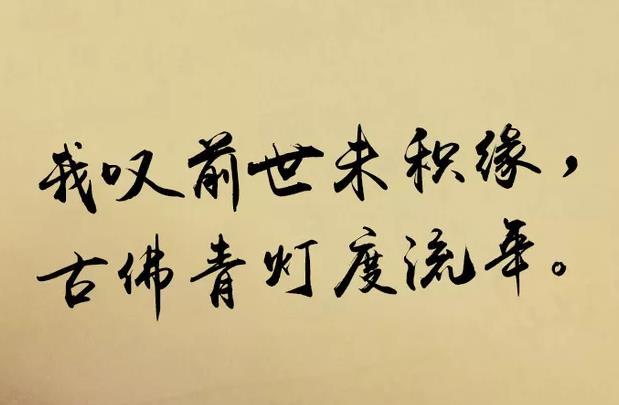 我叹前世未积缘，
古佛青灯度流年。